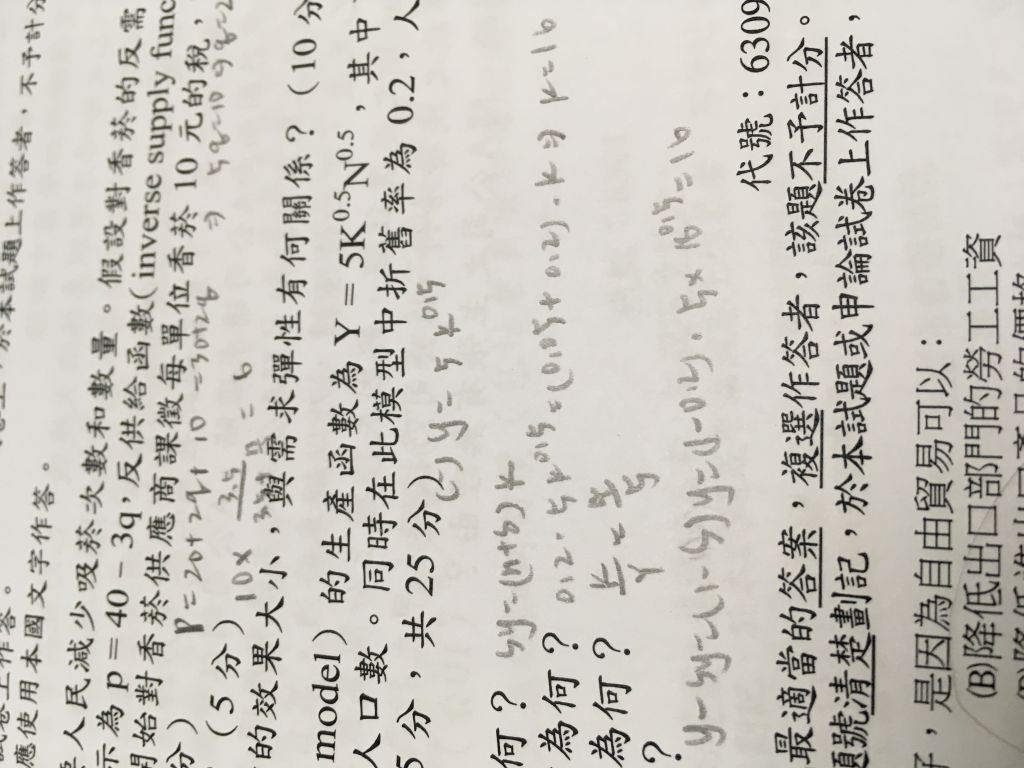 於本試題上作答者，不予計分
應使用本國文字作答。
人民減少吸菸次數和數量。假設對香菸的反需
示為 p = 40 − 3q，反供給函數(inverse supply func
開始對香菸供應商課徵每單位香菸 10 元的稅，
P = 20+2q+10 = 30+2q
分）
（5 分）
的效果大小，與需求彈性有何關係？（10 分
model）的生產函數為 Y = 5K^0.5N^0.5，其中
人口數。同時在此模型中折舊率為 0.2，人
5 分，共 25 分）
(一) y = 5 k^0.5
何？ sy = (n+δ) k
為何？ 0.2 · 5 k^0.5 = (0.05 + 0.2) · k ⇒ k = 16
為何？
？ y − sy = (1 − s) y = (1 − 0.2) · 5 × 16^0.5 = 16
代號：6309
最適當的答案，複選作答者，該題不予計分。
題號清楚劃記，於本試題或申論試卷上作答者，
，是因為自由貿易可以：
(B)降低出口部門的勞工工資